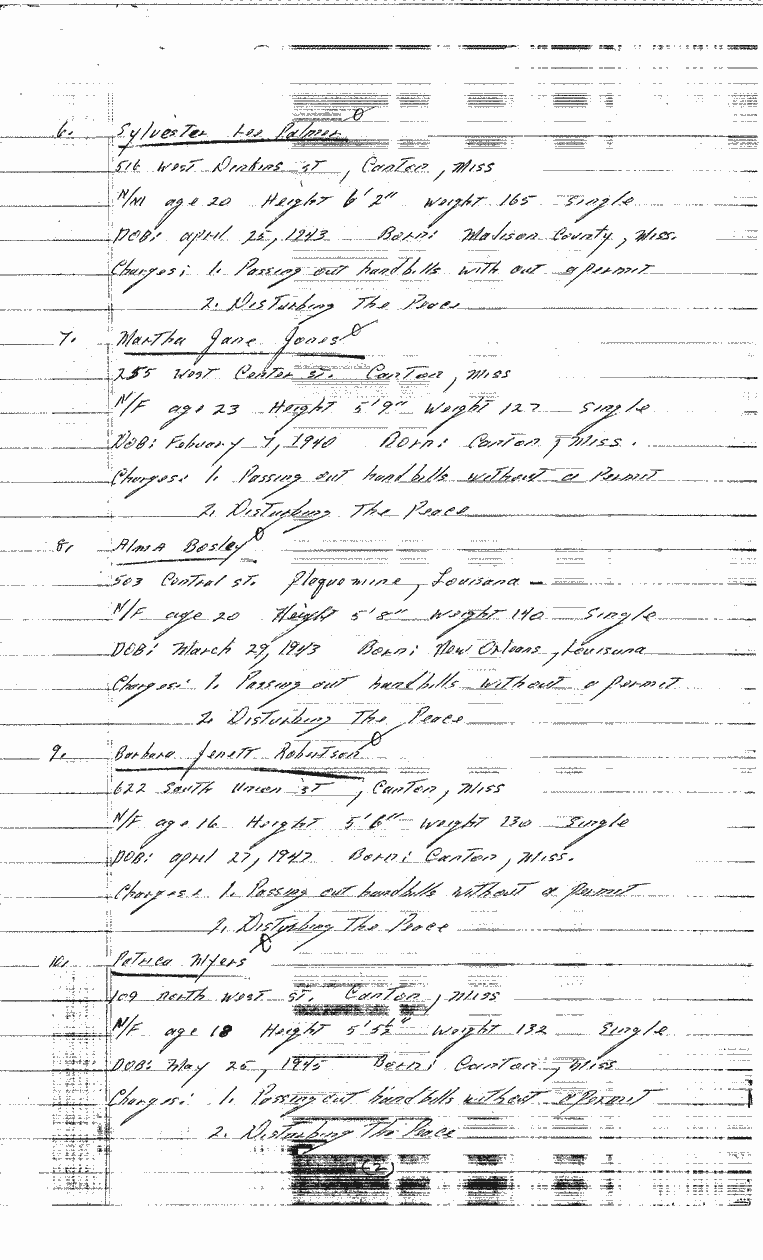 6. Sylvester Lee Palmer
516 West Dinkins st, Canton, Miss
N/M age 20 Height 6'2" weight 165 single
DOB: april 25, 1943 Born: Madison County, Miss.
Charges: 1. Passing out handbills with out a permit
2. Disturbing The Peace
7. Martha Jane Jones
255 West Center st. Canton, Miss
N/F age 23 Height 5'9" weight 127 single
DOB: Febuary 7, 1940 Born: Canton, Miss.
Charges: 1. Passing out handbills without a Permit
2. Disturbing The Peace
8. Alma Bosley
503 Central st. Plaquemine, Louisana
N/F age 20 Height 5'8" weight 140 single
DOB: March 29, 1943 Born: New Orleans, Louisuna
Charges: 1. Passing out handbills without a permit
2. Disturbing The Peace
9. Barbara Jenett Robertson
622 South Union st, Canton, Miss
N/F age 16 Height 5'6" weight 130 single
DOB: april 27, 1947 Born: Canton, Miss.
Charges: 1. Passing out handbills without a permit
2. Disturbing The Peace
10. Patrica Myers
109 north west st. Canton, Miss
N/F age 18 Height 5'5½" weight 132 single
DOB: May 25, 1945 Born: Canton, Miss
Charges: 1. Passing out handbills without a Permit
2. Disturbing The Peace
(2)